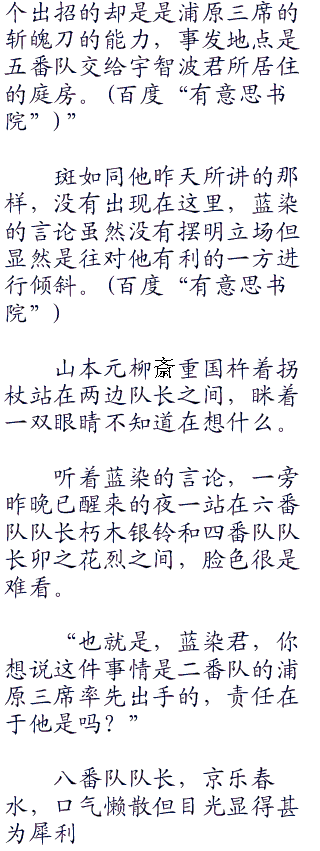 个出招的却是是浦原三席的
斩魄刀的能力，事发地点是
五番队交给宇智波君所居住
的庭房。(百度“有意思书
院”)”
斑如同他昨天所讲的那
样，没有出现在这里，蓝染
的言论虽然没有摆明立场但
显然是往对他有利的一方进
行倾斜。(百度“有意思书
院”)
山本元柳斎重国杵着拐
杖站在两边队长之间，眯着
一双眼睛不知道在想什么。
听着蓝染的言论，一旁
昨晚已醒来的夜一站在六番
队队长朽木银铃和四番队队
长卯之花烈之间，脸色很是
难看。
“也就是，蓝染君，你
想说这件事情是二番队的浦
原三席率先出手的，责任在
于他是吗？”
八番队队长，京乐春
水，口气懒散但目光显得甚
为犀利